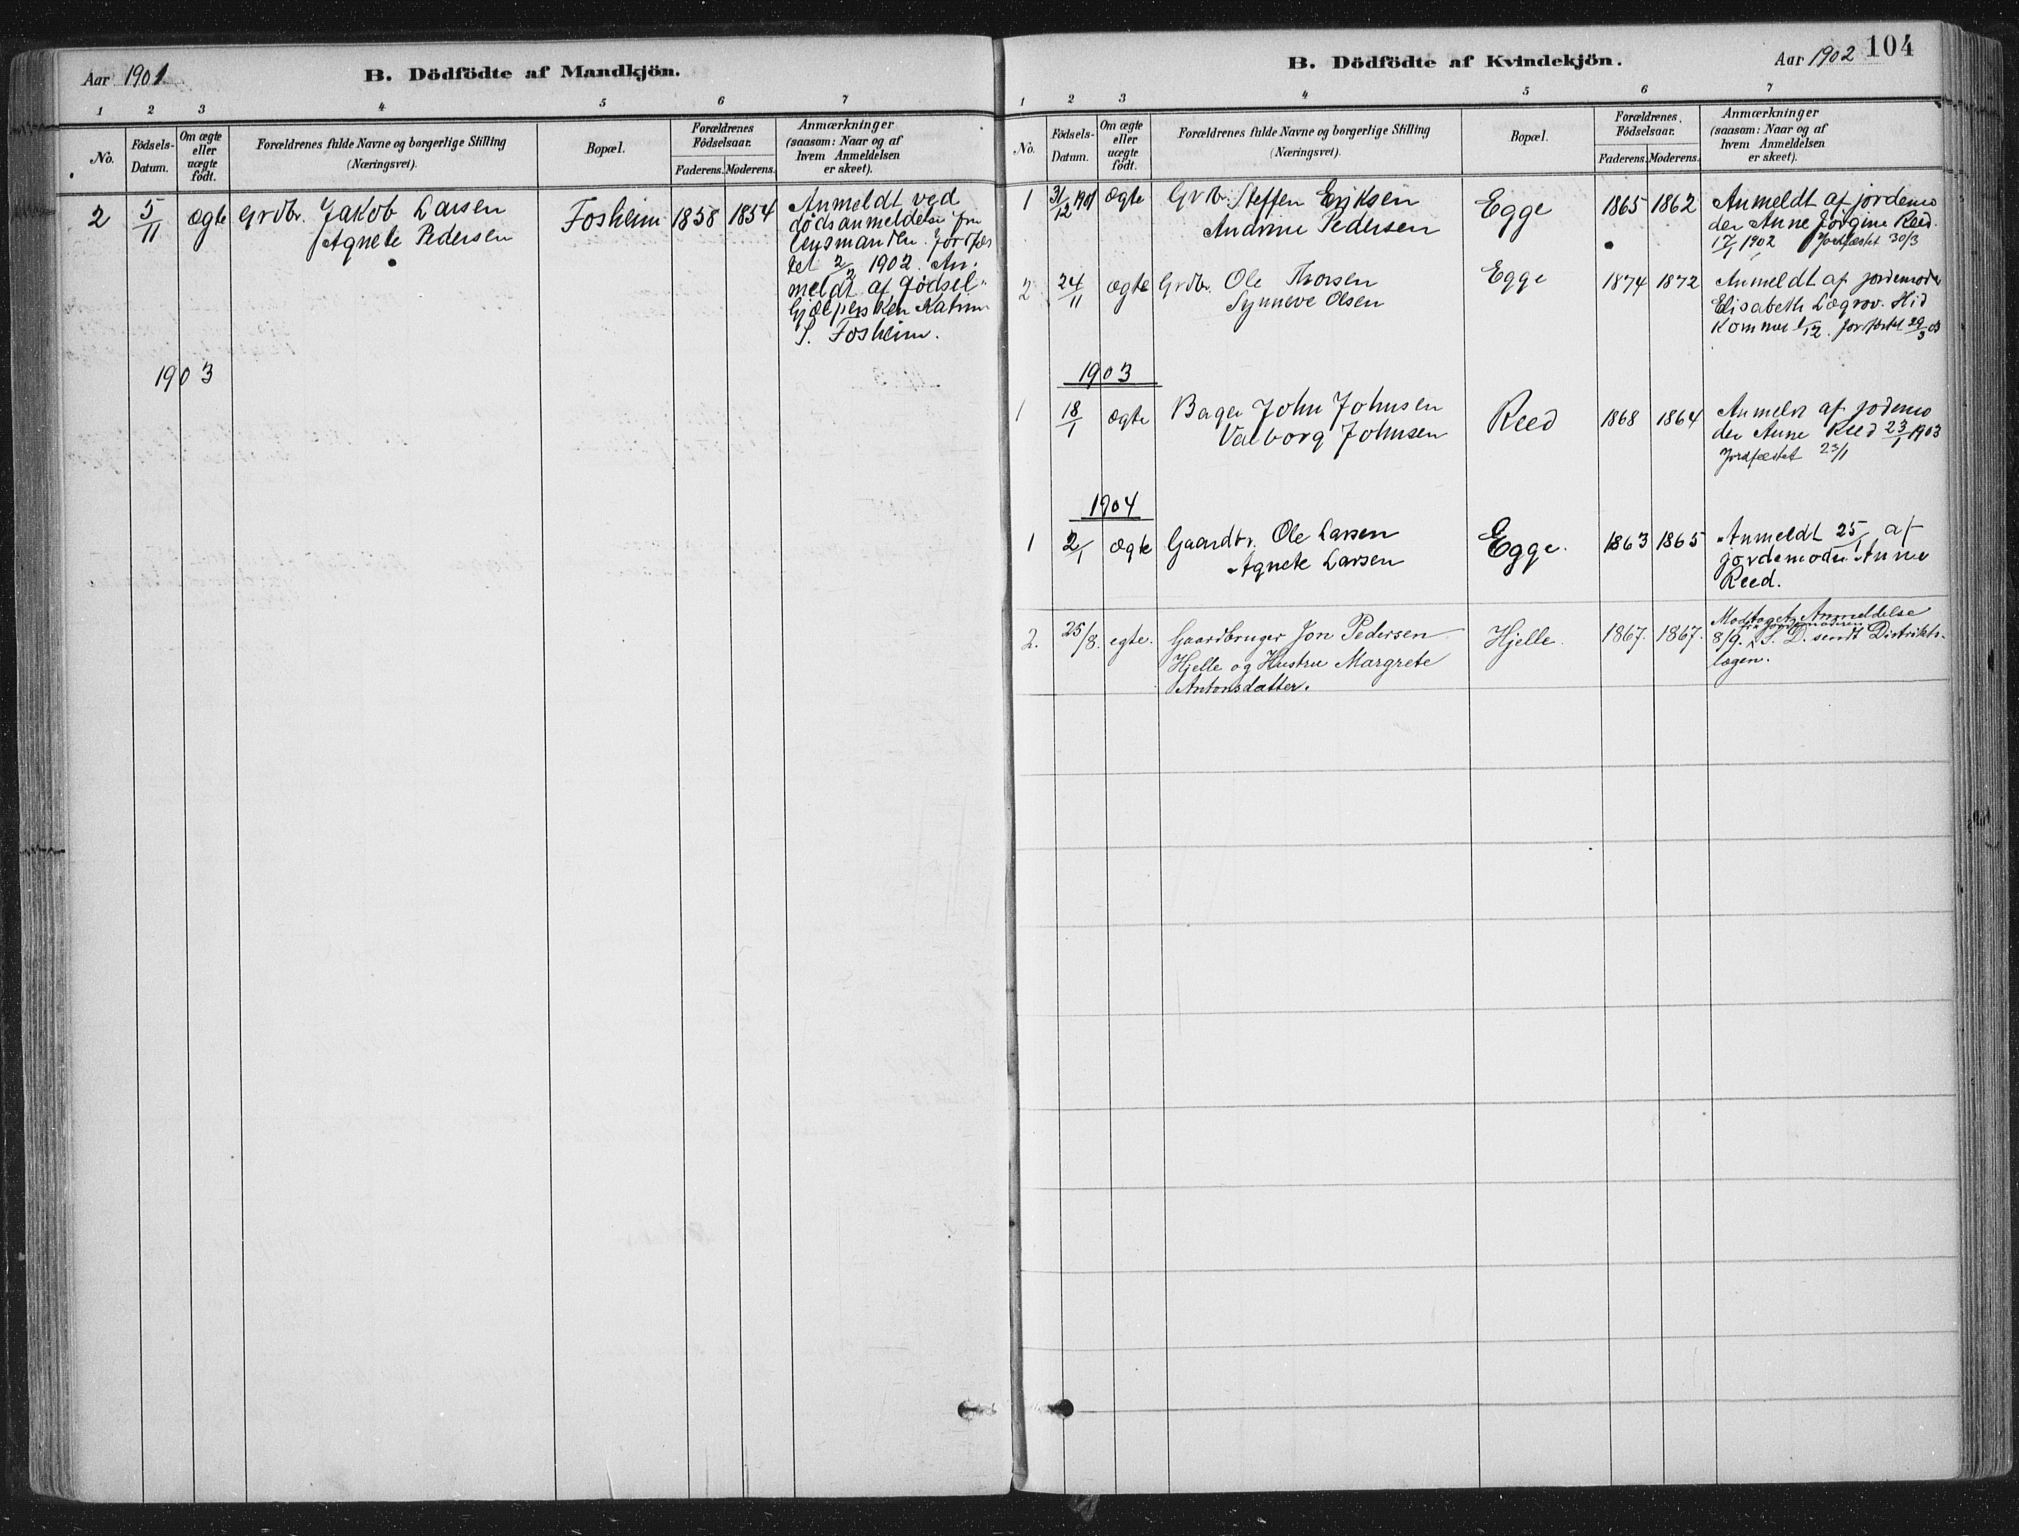 Aar 1901.
B. Dödfödte af Mandkjön.
1 2 3 4 5 6 7
No.
Födsels-
Datum.
Om ægte
eller
uægte
födt.
Forældrenes fulde Navne og borgerlige Stilling
(Næringsvei).
Bopæl.
Forældrenes
Födselsaar.
Faderens. Moderens.
Anmærkninger
(saasom: Naar og af
hvem Anmeldelsen
er skeet).
2 5/11 ægte Grdbr. Jakob Larsen Fosheim 1858 1854 Anmeldt ved
Agnete Pedersen
dødsanmeldelse fra
lensmanden. Jordfæs
tet 2/2 1902. An.
meldt af fødsel-
hjælpersken Katrine
S. Fosheim.
1903
B. Dödfödte af Kvindekjön.
Aar 1902 104
1 2 3 4 5 6 7
No.
Födsels-
Datum.
Om ægte
eller
uægte
födt.
Forældrenes fulde Navne og borgerlige Stilling
(Næringsvei).
Bopæl.
Forældrenes
Födselsaar.
Faderens. Moderens.
Anmærkninger
(saasom: Naar og af
hvem Anmeldelsen
er skeet).
1 31/12 1901 ægte Grdbr. Steffen Eriksen Egge 1865 1862 Anmeldt af jordemo
Andrine Pedersen
der Anne Jørgine Reed.
17/1 1902 Jordfæstet 30/3
2 24/11 ægte Grdbr. Ole Thorsen Egge 1874 1872 Anmeldt af jordemoder
Synneve Olsen
Elisabeth Løgrov. Hid
kommet 1/12. Jordfæstet 29/3 03
1903
1 18/1 ægte Bager John Johnsen Reed 1868 1864 Anmeldt af jodemo
Valborg Johnsen
der Anne Reed 23/1 1903
Jordfæstet 23/1
1904
1 2/1 Ægte Gaardbr. Ole Larsen Egge. 1863 1865 Anmeldt 25/1 af
Agnete Larsen
jordemoder Anne
Reed.
2. 25/8. egte. Gaardbruger Jon Pedersen Hjelle. 1867. 1867. Modtaget Anmeldelse
fra Jordemoderen
Hjelle og Hustru Margrete
8/9. S. D. sendt Distrikts-
Antonsdatter.
lægen.